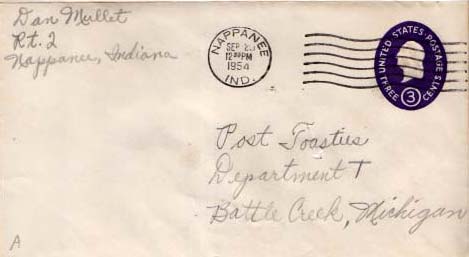 Dan Mullet
Rt. 2
Nappanee, Indiana
NAPPANEE
SEP
12 PM
1954
IND.
UNITED STATES POSTAGE
THREE 3 CENTS
Post Toasties
Department T
Battle Creek, Michigan
A